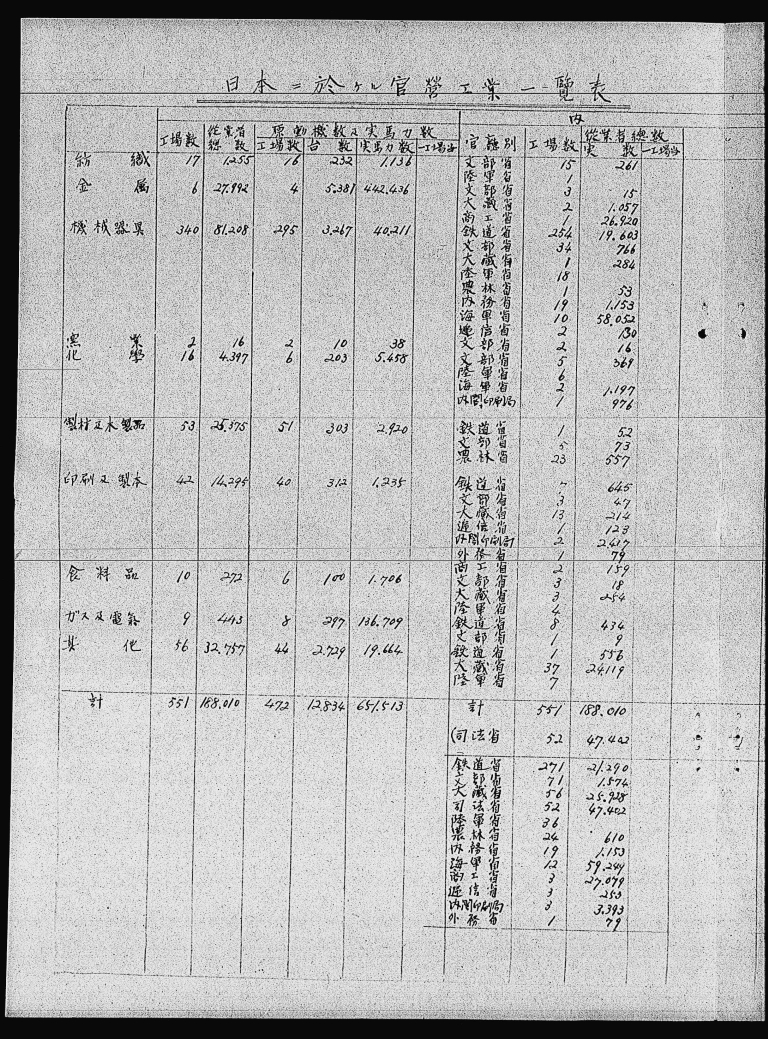 日本ニ於ケル官營工業一覽表
内
工場数 從業者總数 原動機数及実馬力数 官廳別 工場数 從業者總数
工場数 台数 実馬力数 一工場当 実数 一工場当
紡織 17 1.255 16 232 1.136 文部省 15 261
陸軍省 1
金属 6 27.992 4 5.381 442.436 文部省 3 15
大藏省 2 1.057
商工省 1 26.920
機械器具 340 81.208 295 3.267 40.211 鉄道省 254 19.603
文部省 34 766
大藏省 1 284
陸軍省 18
農林省 1 53
内務省 19 1.153
海軍省 10 58.052
逓信省 2 130
窯業 2 16 2 10 38 文部省 2 16
化學 16 4.397 6 203 5.458 文部省 5 369
陸軍省 6
海軍省 2 1.197
内閣印刷局 1 976
製材及木製品 53 25.375 51 303 2.920 鉄道省 1 52
文部省 5 73
農林省 23 557
印刷及製本 42 14.295 40 312 1.235 鉄道省 7 645
文部省 3 47
大藏省 13 214
逓信省 1 123
内閣印刷局 2 2.417
外務省 1 79
商工省 2 159
食料品 10 272 6 100 1.706 文部省 3 18
大藏省 3 254
陸軍省 4
ガス及電氣 9 443 8 297 136.709 鉄道省 8 434
文部省 1 9
其他 56 32.757 44 2.729 19.664 鉄道省 1 556
大藏省 37 24.119
陸軍省 7
計 551 188.010 472 12.834 651.513 計 551 188.010
(司法省 52 47.402
鉄道省 271 21.290
文部省 71 1.574
大藏省 56 25.928
司法省 52 47.402
陸軍省 36
農林省 24 610
内務省 19 1.153
海軍省 12 59.249
商工省 3 27.079
逓信省 3 253
内閣印刷局 3 3.393
外務省 1 79